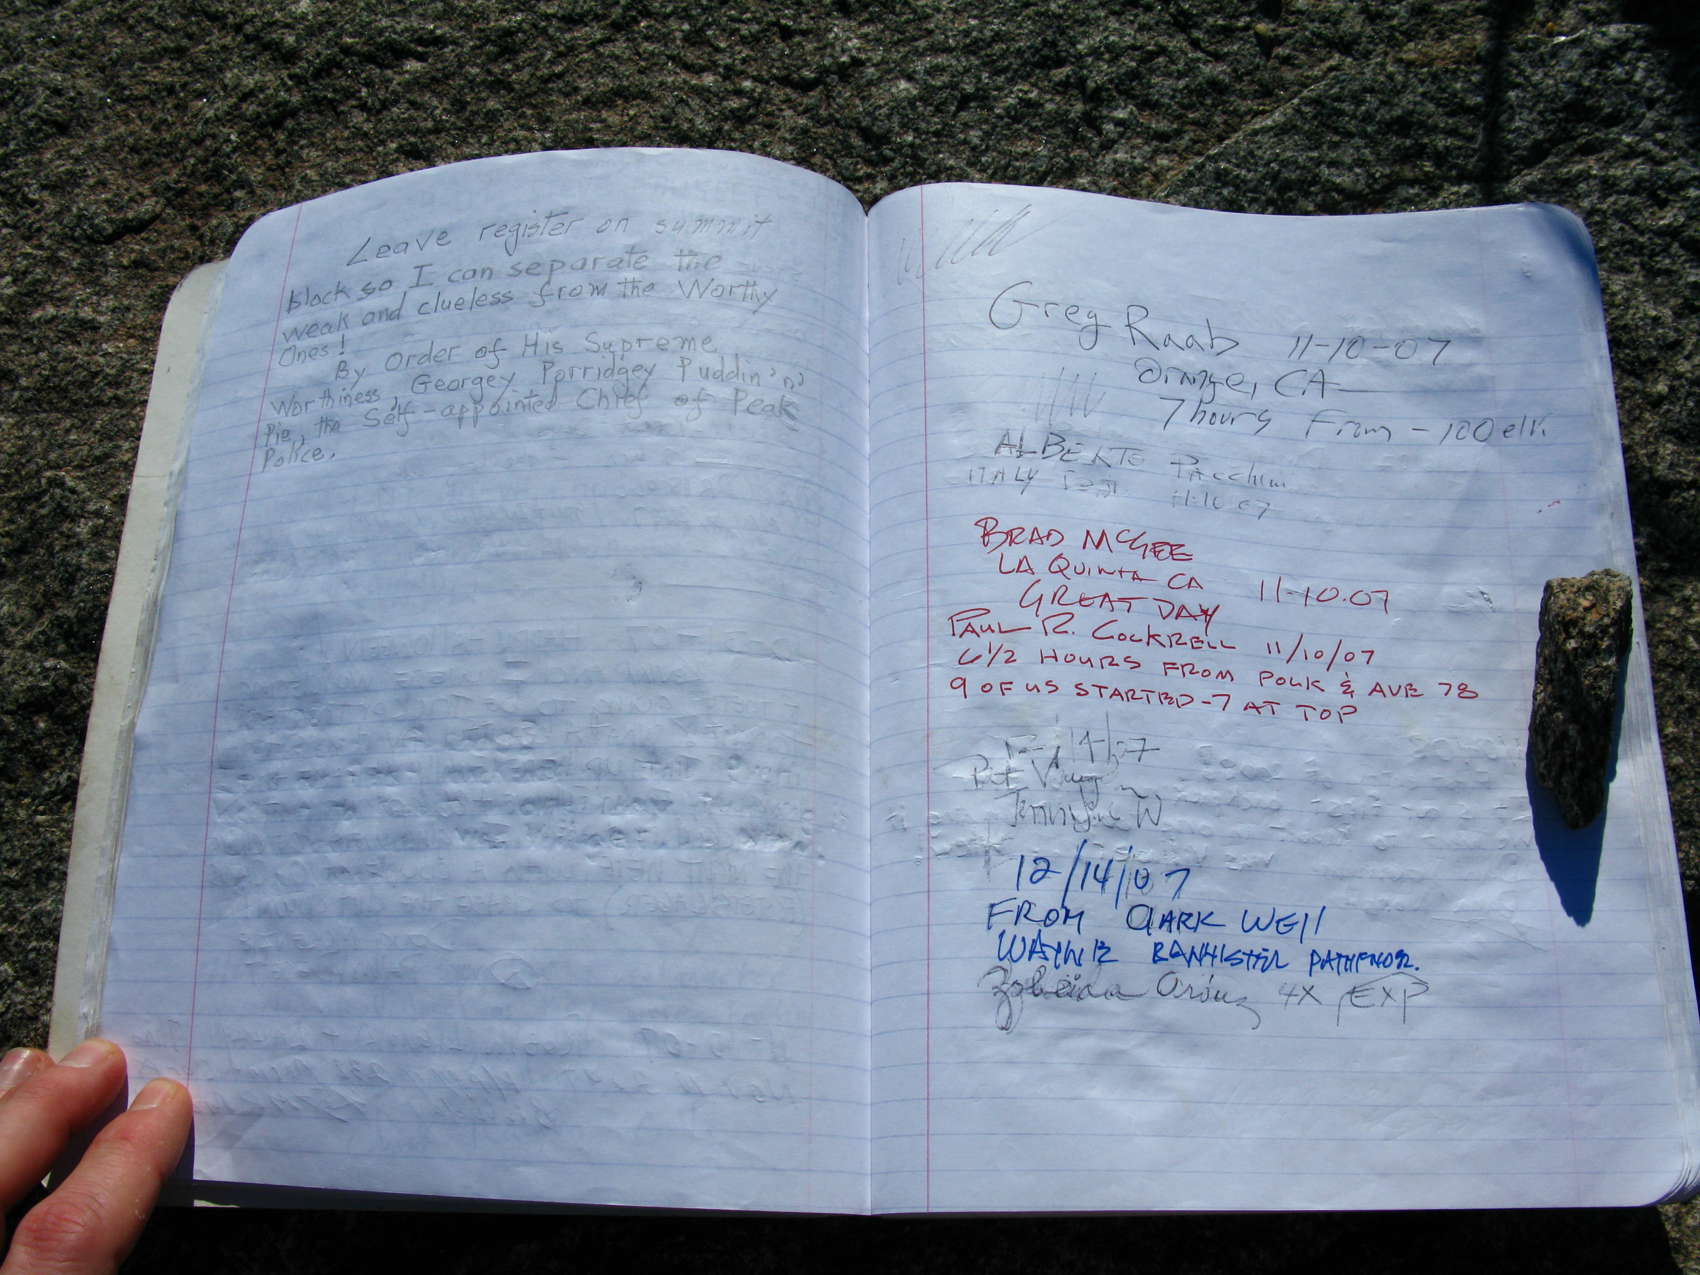 Leave register on summit
block so I can separate the
weak and clueless from the Worthy
Ones!
By Order of His Supreme
Worthiness, Georgey Porridgey Puddin' n'
Pie, the Self-appointed Chief of Peak
Police.
Greg Raab 11-10-07
Orange, CA
7 hours From -100 elv.
ALBERTO Pacchini
ITALY 11.10.07
BRAD McGEE
LA QUINTA CA 11-10.07
GREAT DAY
PAUL R. COCKRELL 11/10/07
6 1/2 HOURS FROM POLK & AVE 78
9 OF US STARTED - 7 AT TOP
12/14/07
FROM CLARK WELL
WAYNE BANNISTER
4X EXP